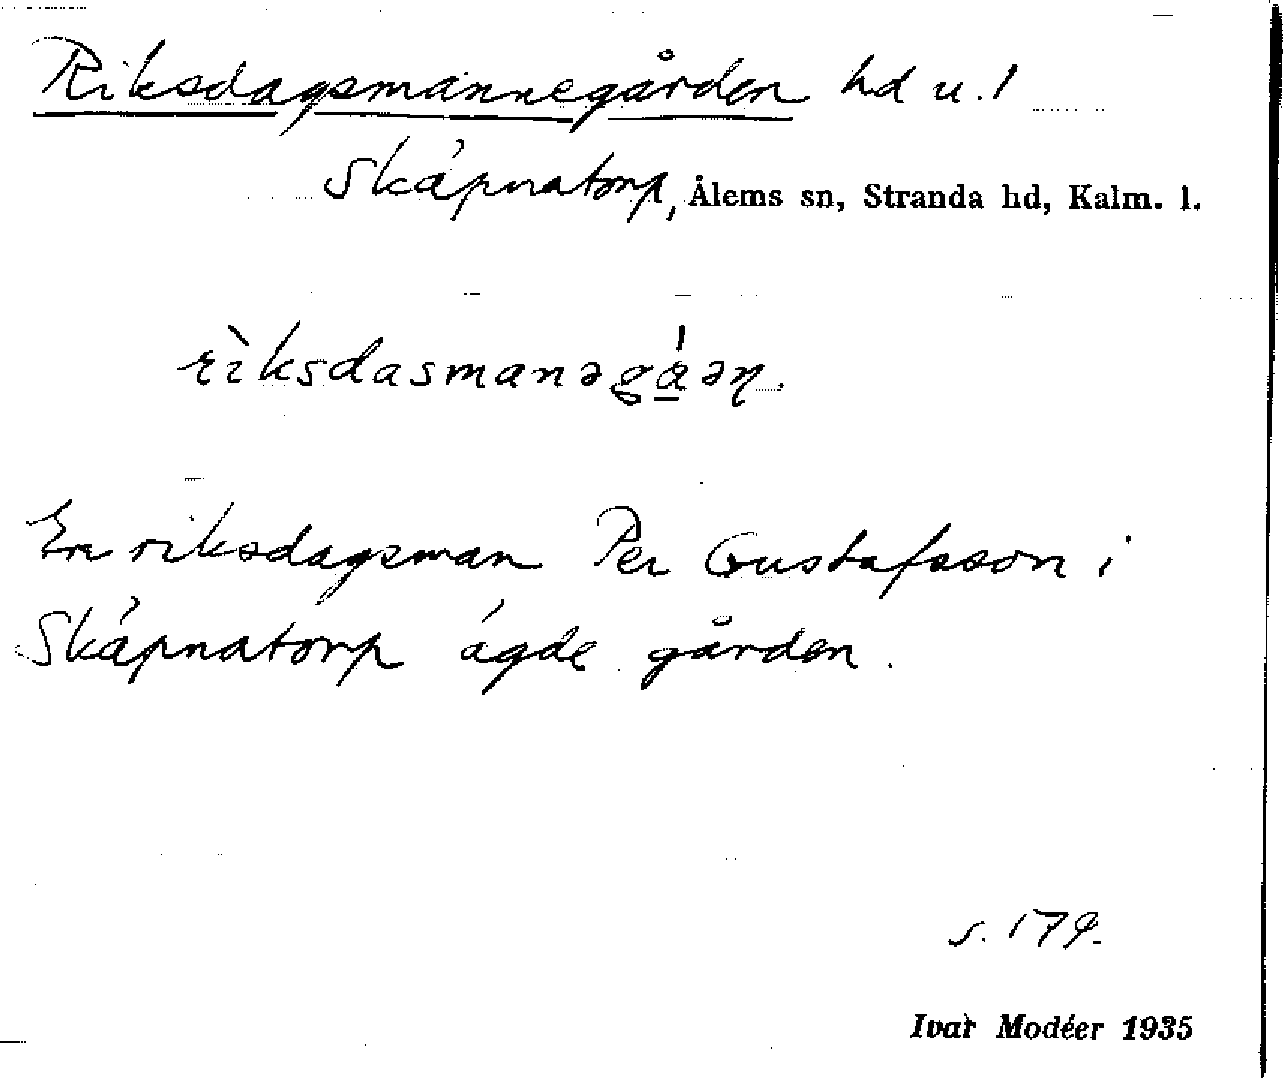 Riksdagsmannegården hd u. 1
Skäpnatorp, Ålems sn, Stranda hd, Kalm. l.
rìksdasmanəgá̱əɳ.
En riksdagsman Per Gustafsson i
Skäpnatorp ägde gården.
s. 179.
Ivar Modéer 1935